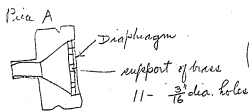 Pica A
Diaphragm
support of brass
11 - 3/16 dia. holes